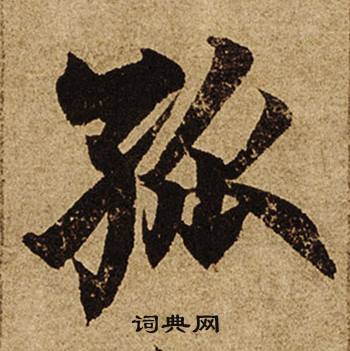 孤
词典网